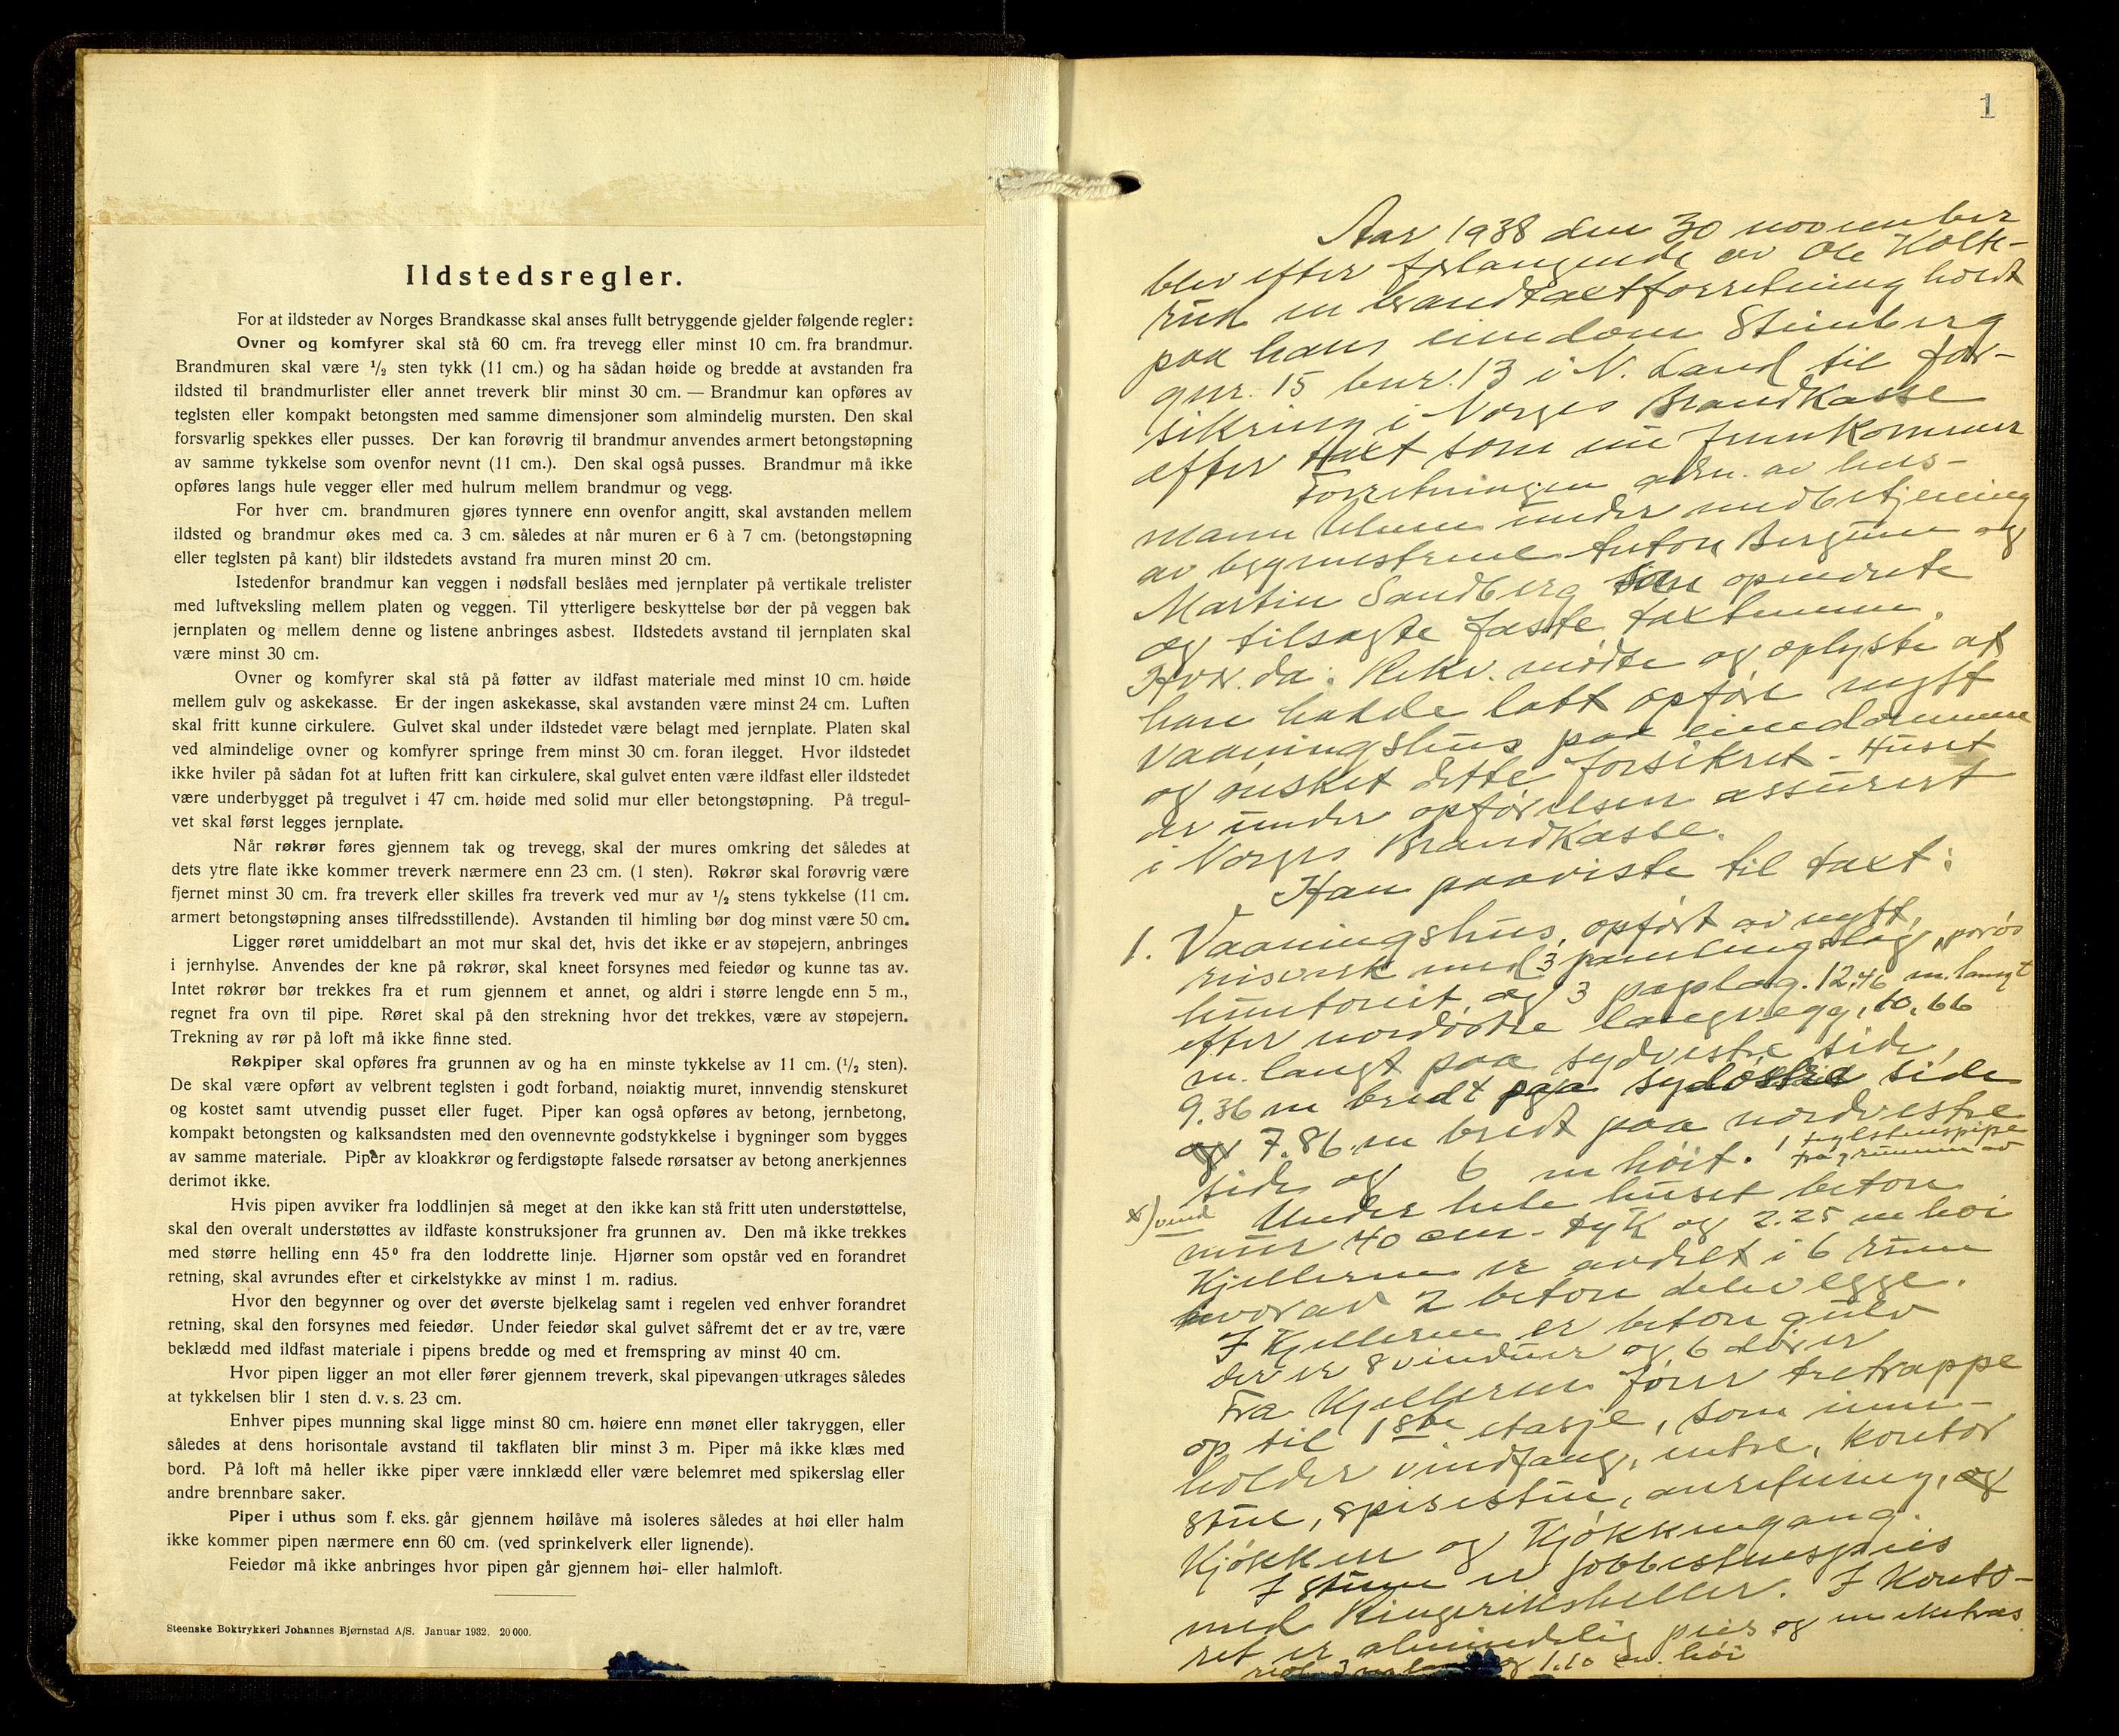 Ildstedsregler.
For at ildsteder av Norges Brandkasse skal anses fullt betryggende gjelder følgende regler:
Ovner og komfyrer skal stå 60 cm. fra trevegg eller minst 10 cm. fra brandmur.
Brandmuren skal være ½ sten tykk (11 cm.) og ha sådan høide og bredde at avstanden fra
ildsted til brandmurlister eller annet treverk blir minst 30 cm. — Brandmur kan opføres av
teglsten eller kompakt betongsten med samme dimensjoner som almindelig mursten. Den skal
forsvarlig spekkes eller pusses. Der kan forøvrig til brandmur anvendes armert betongstøpning
av samme tykkelse som ovenfor nevnt (11 cm.). Den skal også pusses. Brandmur må ikke
opføres langs hule vegger eller med hulrum mellem brandmur og vegg.
For hver cm. brandmuren gjøres tynnere enn ovenfor angitt, skal avstanden mellem
ildsted og brandmur økes med ca. 3 cm. således at når muren er 6 à 7 cm. (betongstøpning
eller teglsten på kant) blir ildstedets avstand fra muren minst 20 cm.
Istedenfor brandmur kan veggen i nødsfall beslåes med jernplater på vertikale trelister
med luftveksling mellem platen og veggen. Til ytterligere beskyttelse bør der på veggen bak
jernplaten og mellem denne og listene anbringes asbest. Ildstedets avstand til jernplaten skal
være minst 30 cm.
Ovner og komfyrer skal stå på føtter av ildfast materiale med minst 10 cm. høide
mellem gulv og askekasse. Er der ingen askekasse, skal avstanden være minst 24 cm. Luften
skal fritt kunne cirkulere. Gulvet skal under ildstedet være belagt med jernplate. Platen skal
ved almindelige ovner og komfyrer springe frem minst 30 cm. foran ilegget. Hvor ildstedet
ikke hviler på sådan fot at luften fritt kan cirkulere, skal gulvet enten være ildfast eller ildstedet
være underbygget på tregulvet i 47 cm. høide med solid mur eller betongstøpning. På tregul-
vet skal først legges jernplate.
Når røkrør føres gjennem tak og trevegg, skal der mures omkring det således at
dets ytre flate ikke kommer treverk nærmere enn 23 cm. (1 sten). Røkrør skal forøvrig være
fjernet minst 30 cm. fra treverk eller skilles fra treverk ved mur av ½ stens tykkelse (11 cm.
armert betongstøpning anses tilfredsstillende). Avstanden til himling bør dog minst være 50 cm.
Ligger røret umiddelbart an mot mur skal det, hvis det ikke er av støpejern, anbringes
i jernhylse. Anvendes der kne på røkrør, skal kneet forsynes med feiedør og kunne tas av.
Intet røkrør bør trekkes fra et rum gjennem et annet, og aldri i større lengde enn 5 m.,
regnet fra ovn til pipe. Røret skal på den strekning hvor det trekkes, være av støpejern.
Trekning av rør på loft må ikke finne sted.
Røkpiper skal opføres fra grunnen av og ha en minste tykkelse av 11 cm. (½ sten).
De skal være opført av velbrent teglsten i godt forband, nøiaktig muret, innvendig stenskuret
og kostet samt utvendig pusset eller fuget. Piper kan også opføres av betong, jernbetong,
kompakt betongsten og kalksandsten med den ovennevnte godstykkelse i bygninger som bygges
av samme materiale. Piper av kloakkrør og ferdigstøpte falsede rørsatser av betong anerkjennes
derimot ikke.
Hvis pipen avviker fra loddlinjen så meget at den ikke kan stå fritt uten understøttelse,
skal den overalt understøttes av ildfaste konstruksjoner fra grunnen av. Den må ikke trekkes
med større helling enn 45° fra den loddrette linje. Hjørner som opstår ved en forandret
retning, skal avrundes efter et cirkelstykke av minst 1 m. radius.
Hvor den begynner og over det øverste bjelkelag samt i regelen ved enhver forandret
retning, skal den forsynes med feiedør. Under feiedør skal gulvet såfremt det er av tre, være
beklædd med ildfast materiale i pipens bredde og med et fremspring av minst 40 cm.
Hvor pipen ligger an mot eller fører gjennem treverk, skal pipevangen utkrages således
at tykkelsen blir 1 sten d. v. s. 23 cm.
Enhver pipes munning skal ligge minst 80 cm. høiere enn mønet eller takryggen, eller
således at dens horisontale avstand til takflaten blir minst 3 m. Piper må ikke klæs med
bord. På loft må heller ikke piper være innklædd eller være belemret med spikerslag eller
andre brennbare saker.
Piper i uthus som f. eks. går gjennem høilåve må isoleres således at høi eller halm
ikke kommer pipen nærmere enn 60 cm. (ved sprinkelverk eller lignende).
Feiedør må ikke anbringes hvor pipen går gjennem høi- eller halmloft.
Steenske Boktrykkeri Johannes Bjørnstad A/S. Januar 1932. 20 000.
1
Aar 1938 den 30 november
blev efter forlangende av Ole Holte-
rud en brandtaxtforretning holdt
paa hans eiendom Stenberg
gnr. 15 bnr. 13 i N. Land til for-
sikring i Norges Brandkasse
efter taxt som nu fremkommer
Forretningen adm. av lens-
mann under medbetjening
av bygmestrene Anton Bergum og
Martin Sandberg som opnevnte
og tilsagte faste taxtmenn.
Hvor da: Rekv. mødte og oplyste at
han hadde latt opføre nytt
vaaningshus paa eiendommen
og ønsket dette forsikret. Huset
er under opførelsen assurert
i Norges Brandkasse.
Han paaviste til taxt:
1. Vaaningshus, opført av nytt,
reisverk med 3 pamlingslag, porøs
huntonit og 3 paplag. 12,46 m. langt
efter nordøstre langvegg, 10,66
m. langt paa sydvestre side,
9.36 m bredt paa sydøstre side
og 7.86 m bredt paa nordvestre
side og 6 m høit. 1 teglstenspipe
fra grunnen av
x) vind Under hele huset beton
mur 40 cm. tyk og 2.25 m høi
Kjelleren er avdelt i 6 rum
hvorav 2 beton delevegge.
I Kjelleren er beton gulv
der er 8 vinduer og 6 dører
Fra Kjelleren fører tretrappe
op til 1ste etasje, som inne-
holder vindfang, entre, kontor
stue, spisestue, anretning, og
Kjøkken og Kjøkkengang.
I stuen er fobbestenspeis
med Ringeriksheller. I Konto-
ret er almindelig peis og en
3 m lang og 1.10 m. høi